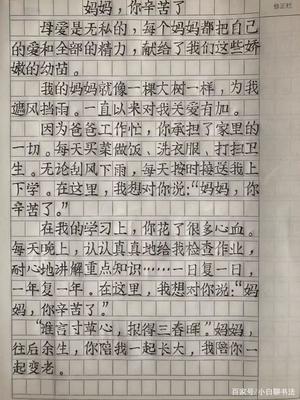 妈妈，你辛苦了
母爱是无私的，每个妈妈都把自己
的爱和全部的精力，献给了我们这些娇
嫩的幼苗。
我的妈妈就像一棵大树一样，为我
遮风挡雨。一直以来对我关爱有加。
因为爸爸工作忙，你承担了家里的
一切。每天买菜做饭、洗衣服、打扫卫
生。无论刮风下雨，每天按时接送我上
下学。在这里，我想对你说：“妈妈，你
辛苦了。”
在我的学习上，你花了很多心血。
每天晚上，认认真真地给我检查作业，
耐心地讲解重点知识……一日复一日，
一年复一年。在这里，我想对你说：“妈
妈，你辛苦了。”
“谁言寸草心，报得三春晖。”妈妈，
往后余生，你陪我一起长大，我陪你一
起变老。
修正栏
百家号/小白聊书法